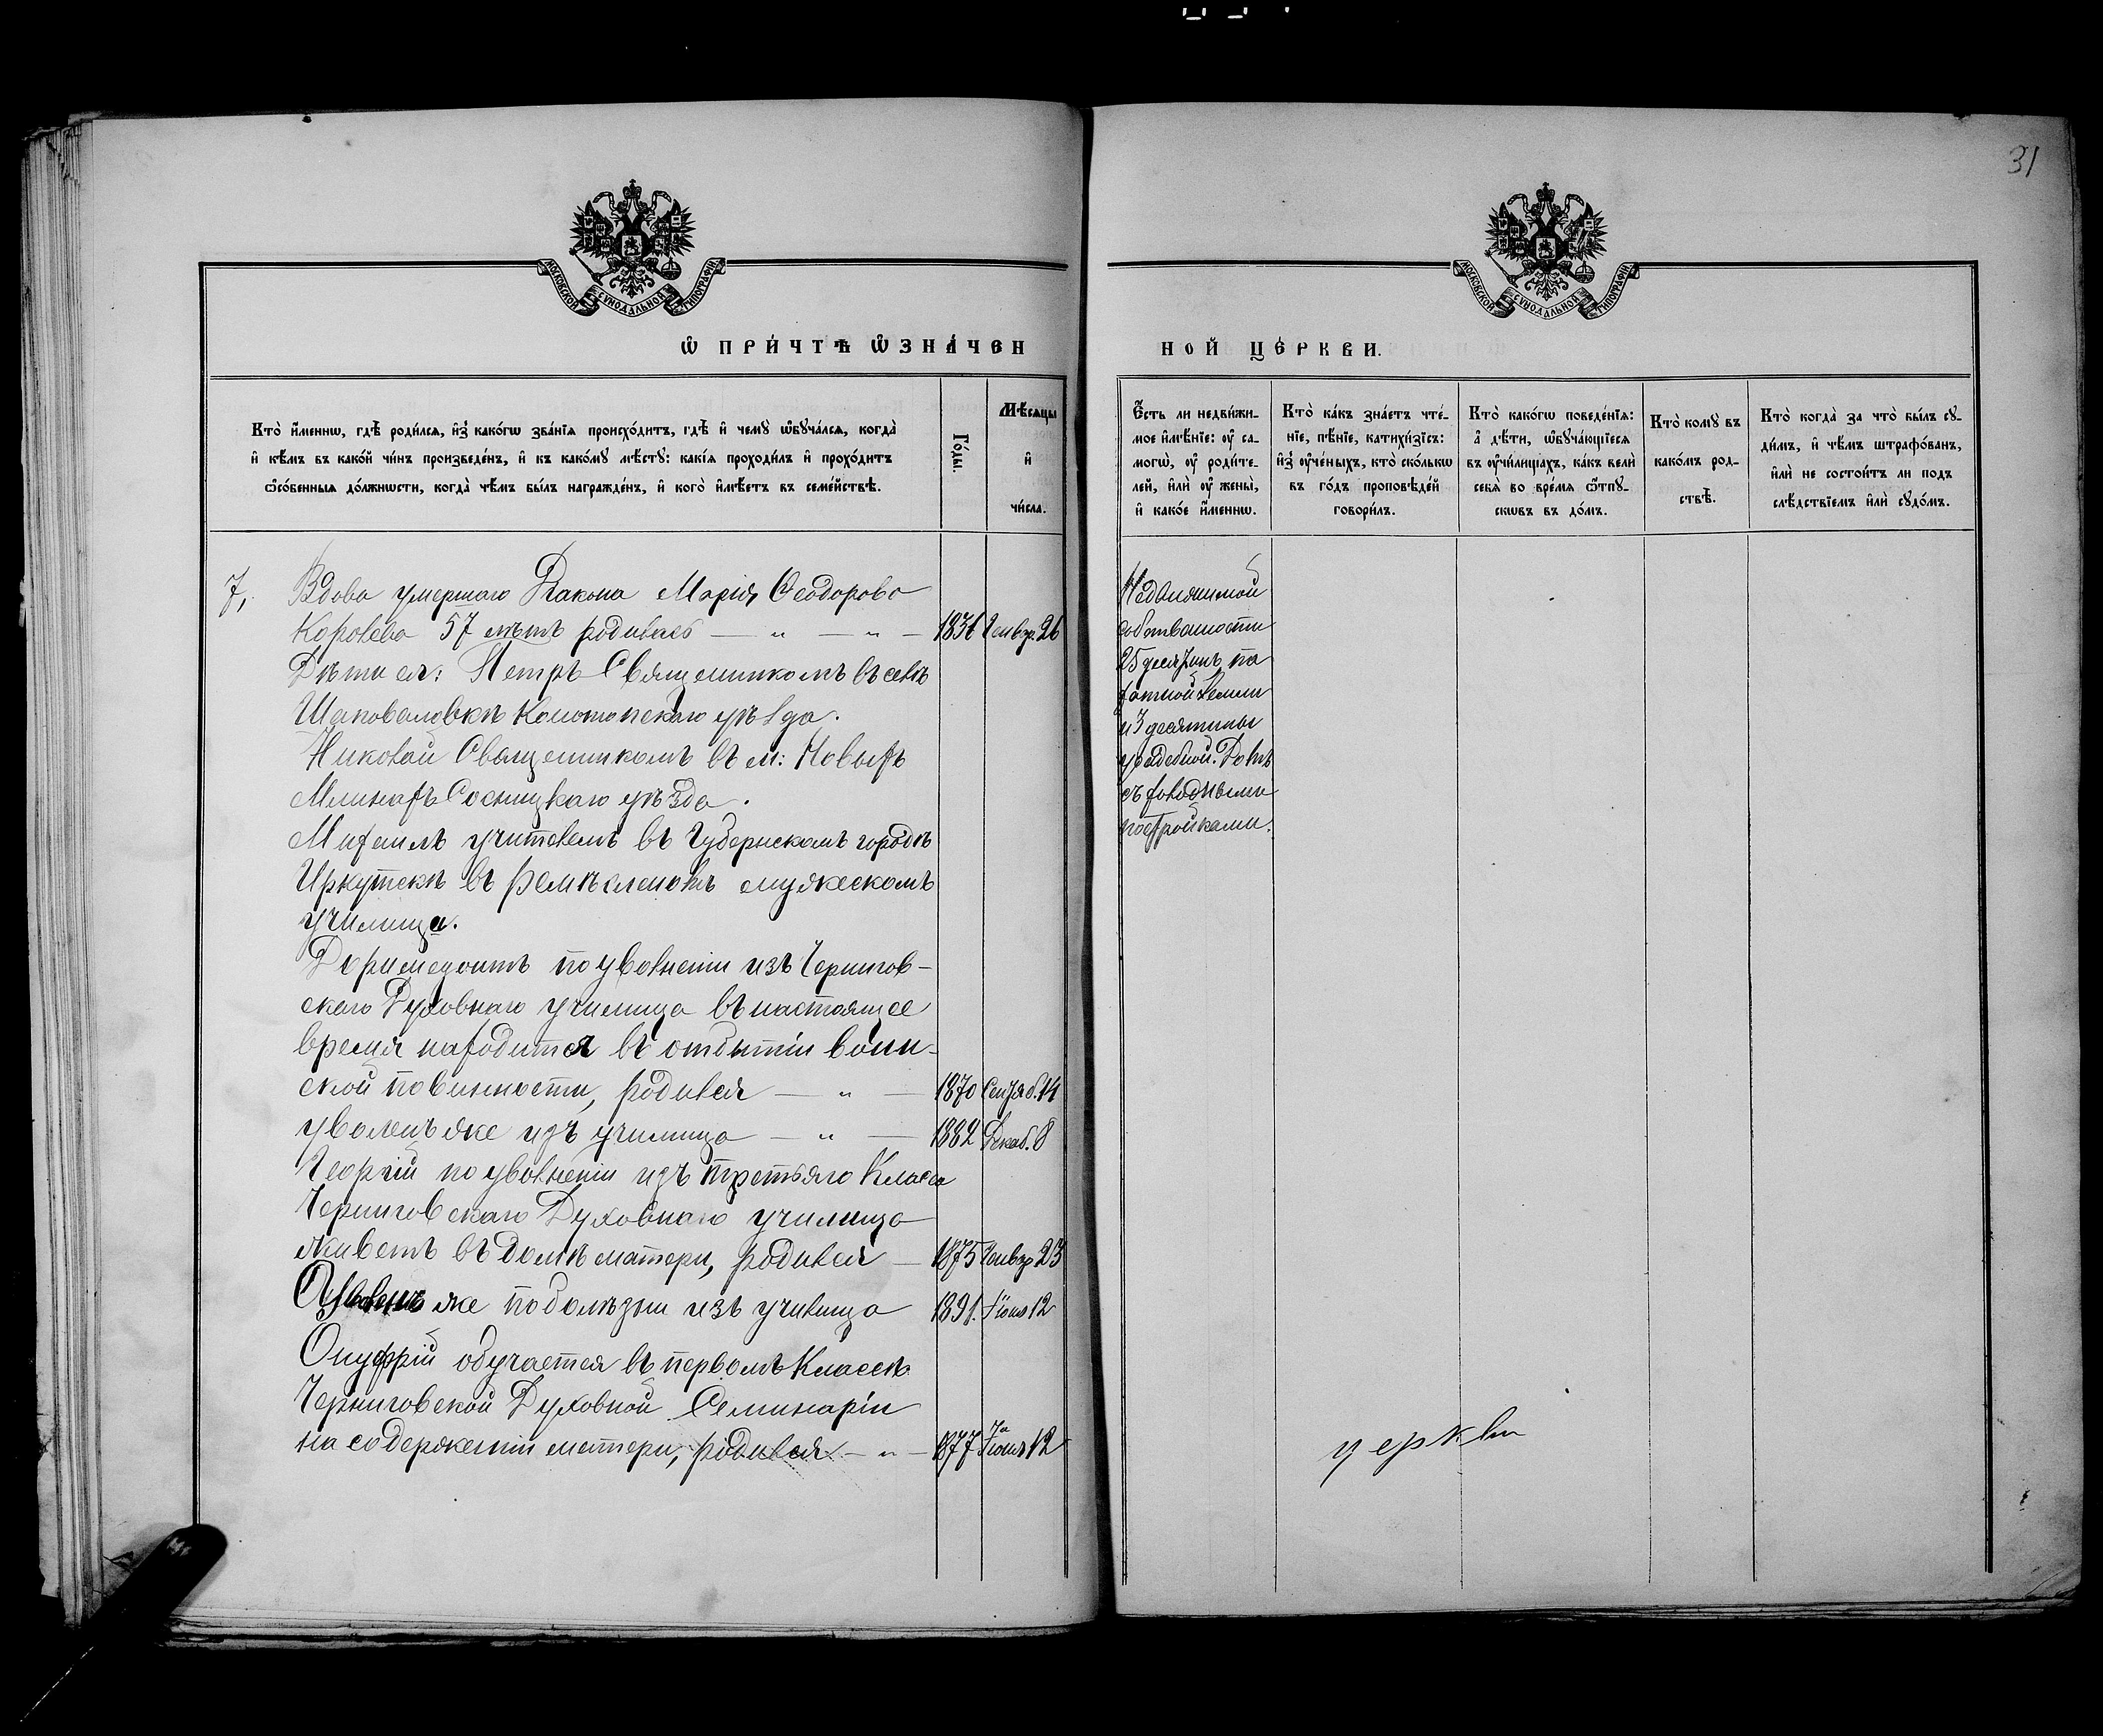 31
МОСКОВСКОЙ СѴНОДАЛЬНОЙ ТИПОГРАФІИ
МОСКОВСКОЙ СѴНОДАЛЬНОЙ ТИПОГРАФІИ
Ѡ ПРИ́ЧТѢ Ѡ҆ЗНА́ЧЕН
НОЙ ЦЕ́РКВИ.
Кто̀ и҆́меннѡ, гдѣ̀ роди́лсѧ, и҆з̾ како́гѡ зва́нїѧ происхо́дитъ, гдѣ̀ и҆ чемꙋ̀ ѡ҆бꙋча́лсѧ, когда̀
и҆ кѣ́мъ въ како́й чи́нъ произведе́нъ, и҆ къ како́мꙋ мѣ́стꙋ: какі́ѧ проходи́лъ и҆ прохо́дитъ
ѻ҆со́бенныѧ до́лжнѡсти, когда̀ чѣ́мъ бы́лъ награжде́нъ, и҆ кого̀ и҆мѣ́етъ въ семе́йствѣ.
Го́ды.
Мѣ́сѧцы
и҆
чи́сла.
Е҆́сть ли недви́жи-
мое и҆мѣ́нїе: ᲂу҆ са-
могѡ̀, ᲂу҆ роди́те-
лей, и҆лѝ ᲂу҆ жены̀,
и҆ како́е и҆́меннѡ.
Кто̀ ка́къ зна́етъ чте́-
нїе, пѣ́нїе, катихи́зїсъ:
и҆з̾ ᲂу҆че́ныхъ, кто̀ ско́лькѡ
въ го́дъ проповѣ́дей
говори́лъ.
Кто̀ како́гѡ поведе́нїѧ:
а҆ дѣ́ти, ѡ҆бꙋча́ющїесѧ
въ ᲂу҆чи́лищахъ, ка́къ велѝ
себѧ̀ во вре́мѧ ѿпꙋ-
скѡвъ въ до́мъ.
Кто̀ комꙋ̀ въ
како́мъ род-
ствѣ̀.
Кто̀ когда̀ за что̀ бы́лъ сꙋ-
ди́мъ, и҆ чѣ́мъ штрафо́ванъ,
и҆лѝ не состои́тъ ли под̾
слѣ́дствїемъ и҆лѝ сꙋдо́мъ.
7, Вдова умершаго Діакона Марія Ѳеодорова
Королева 57 лѣтъ родилась — „ — „ — 1836 Генвар. 26
Дѣти ея: Петръ Священникомъ въ селѣ
Шаповаловкѣ Конотопскаго уѣзда.
Николай Священникомъ въ м: Новыхъ
Млинахъ Сосницкаго уѣзда.
Михаилъ учителемъ въ Губернскомъ городѣ
Иркутскѣ въ ремѣсленомъ мужескомъ
училищѣ.
Доримедонтъ по увольненіи изъ Чернигов-
скаго Духовнаго училища въ настоящее
время находится въ отбытіи воин-
ской повинности, родился — „ — 1870 Сентяб. 14
уволенъ же изъ училища — „ — 1882 Декаб. 8
Георгій по увольненіи изъ третьяго Класа
Черниговскаго Духовнаго училища
живетъ въ домѣ матери, родился — 1875 Генвар 23
Уволенъ же по болѣзни изъ училища 1891. Іюня 12
Онуфрій обучается въ первомъ Классѣ
Черниговской Духовной Семинаріи
на содержаніи матери, родился — „ — 1877 Іюня 12
Недвижимой
собственности
25 десятинъ па
хотной земли
и 3 десятины
усадебной. Домъ
съ холодными
постройками.
церкви